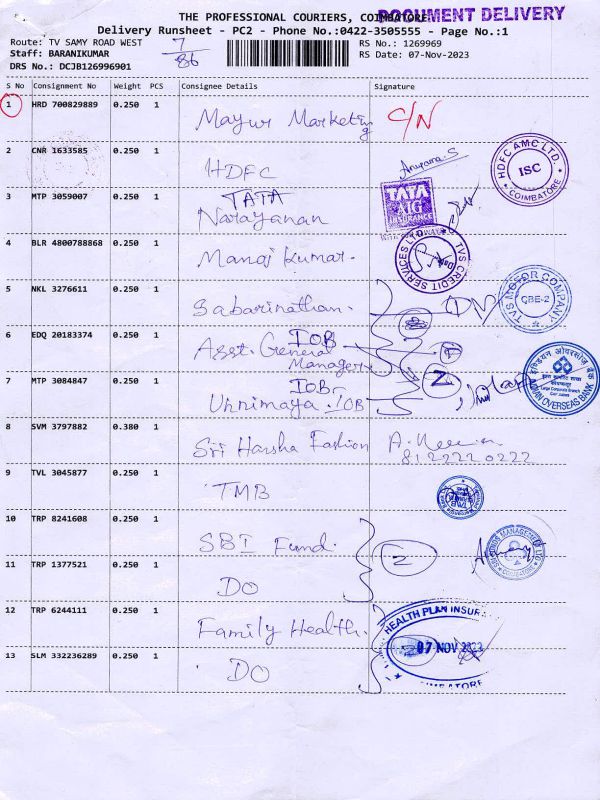 THE PROFESSIONAL COURIERS, COIMBATORE
DOCUMENT DELIVERY
Delivery Runsheet - PC2 - Phone No.:0422-3505555 - Page No.:1
Route: TV SAMY ROAD WEST
7/86
RS No.: 1269969
Staff: BARANIKUMAR
RS Date: 07-Nov-2023
DRS No.: DCJB126996901
S No Consignment No Weight PCS Consignee Details Signature
1 HRD 700829889 0.250 1 Mayur Marketing C/N
2 CNR 1633585 0.250 1 HDFC Anupama.S
HDFC AMC LTD. ISC COIMBATORE
3 MTP 3059007 0.250 1 TATA Narayanan
TATA AIG INSURANCE
4 BLR 4800788868 0.250 1 Manoj Kumar.
TVS CREDIT SERVICES LTD
5 NKL 3276611 0.250 1 Sabarinathan.
TVS MOTOR COMPANY CBE-2
6 EDQ 20183374 0.250 1 IOB Asst. General Manager
7 MTP 3084847 0.250 1 IOB Unnimaya. IOB 2
इण्डियन ओवरसीज़ बैंक INDIAN OVERSEAS BANK
8 SVM 3797882 0.380 1 Sri Harsha Fashion
8122220222
9 TVL 3045877 0.250 1 TMB
TMB
10 TRP 8241608 0.250 1 SBI Fund. 2
11 TRP 1377521 0.250 1 DO
12 TRP 6244111 0.250 1 Family Health.
HEALTH PLAN INSUR
07 NOV 2023
13 SLM 332236289 0.250 1 DO